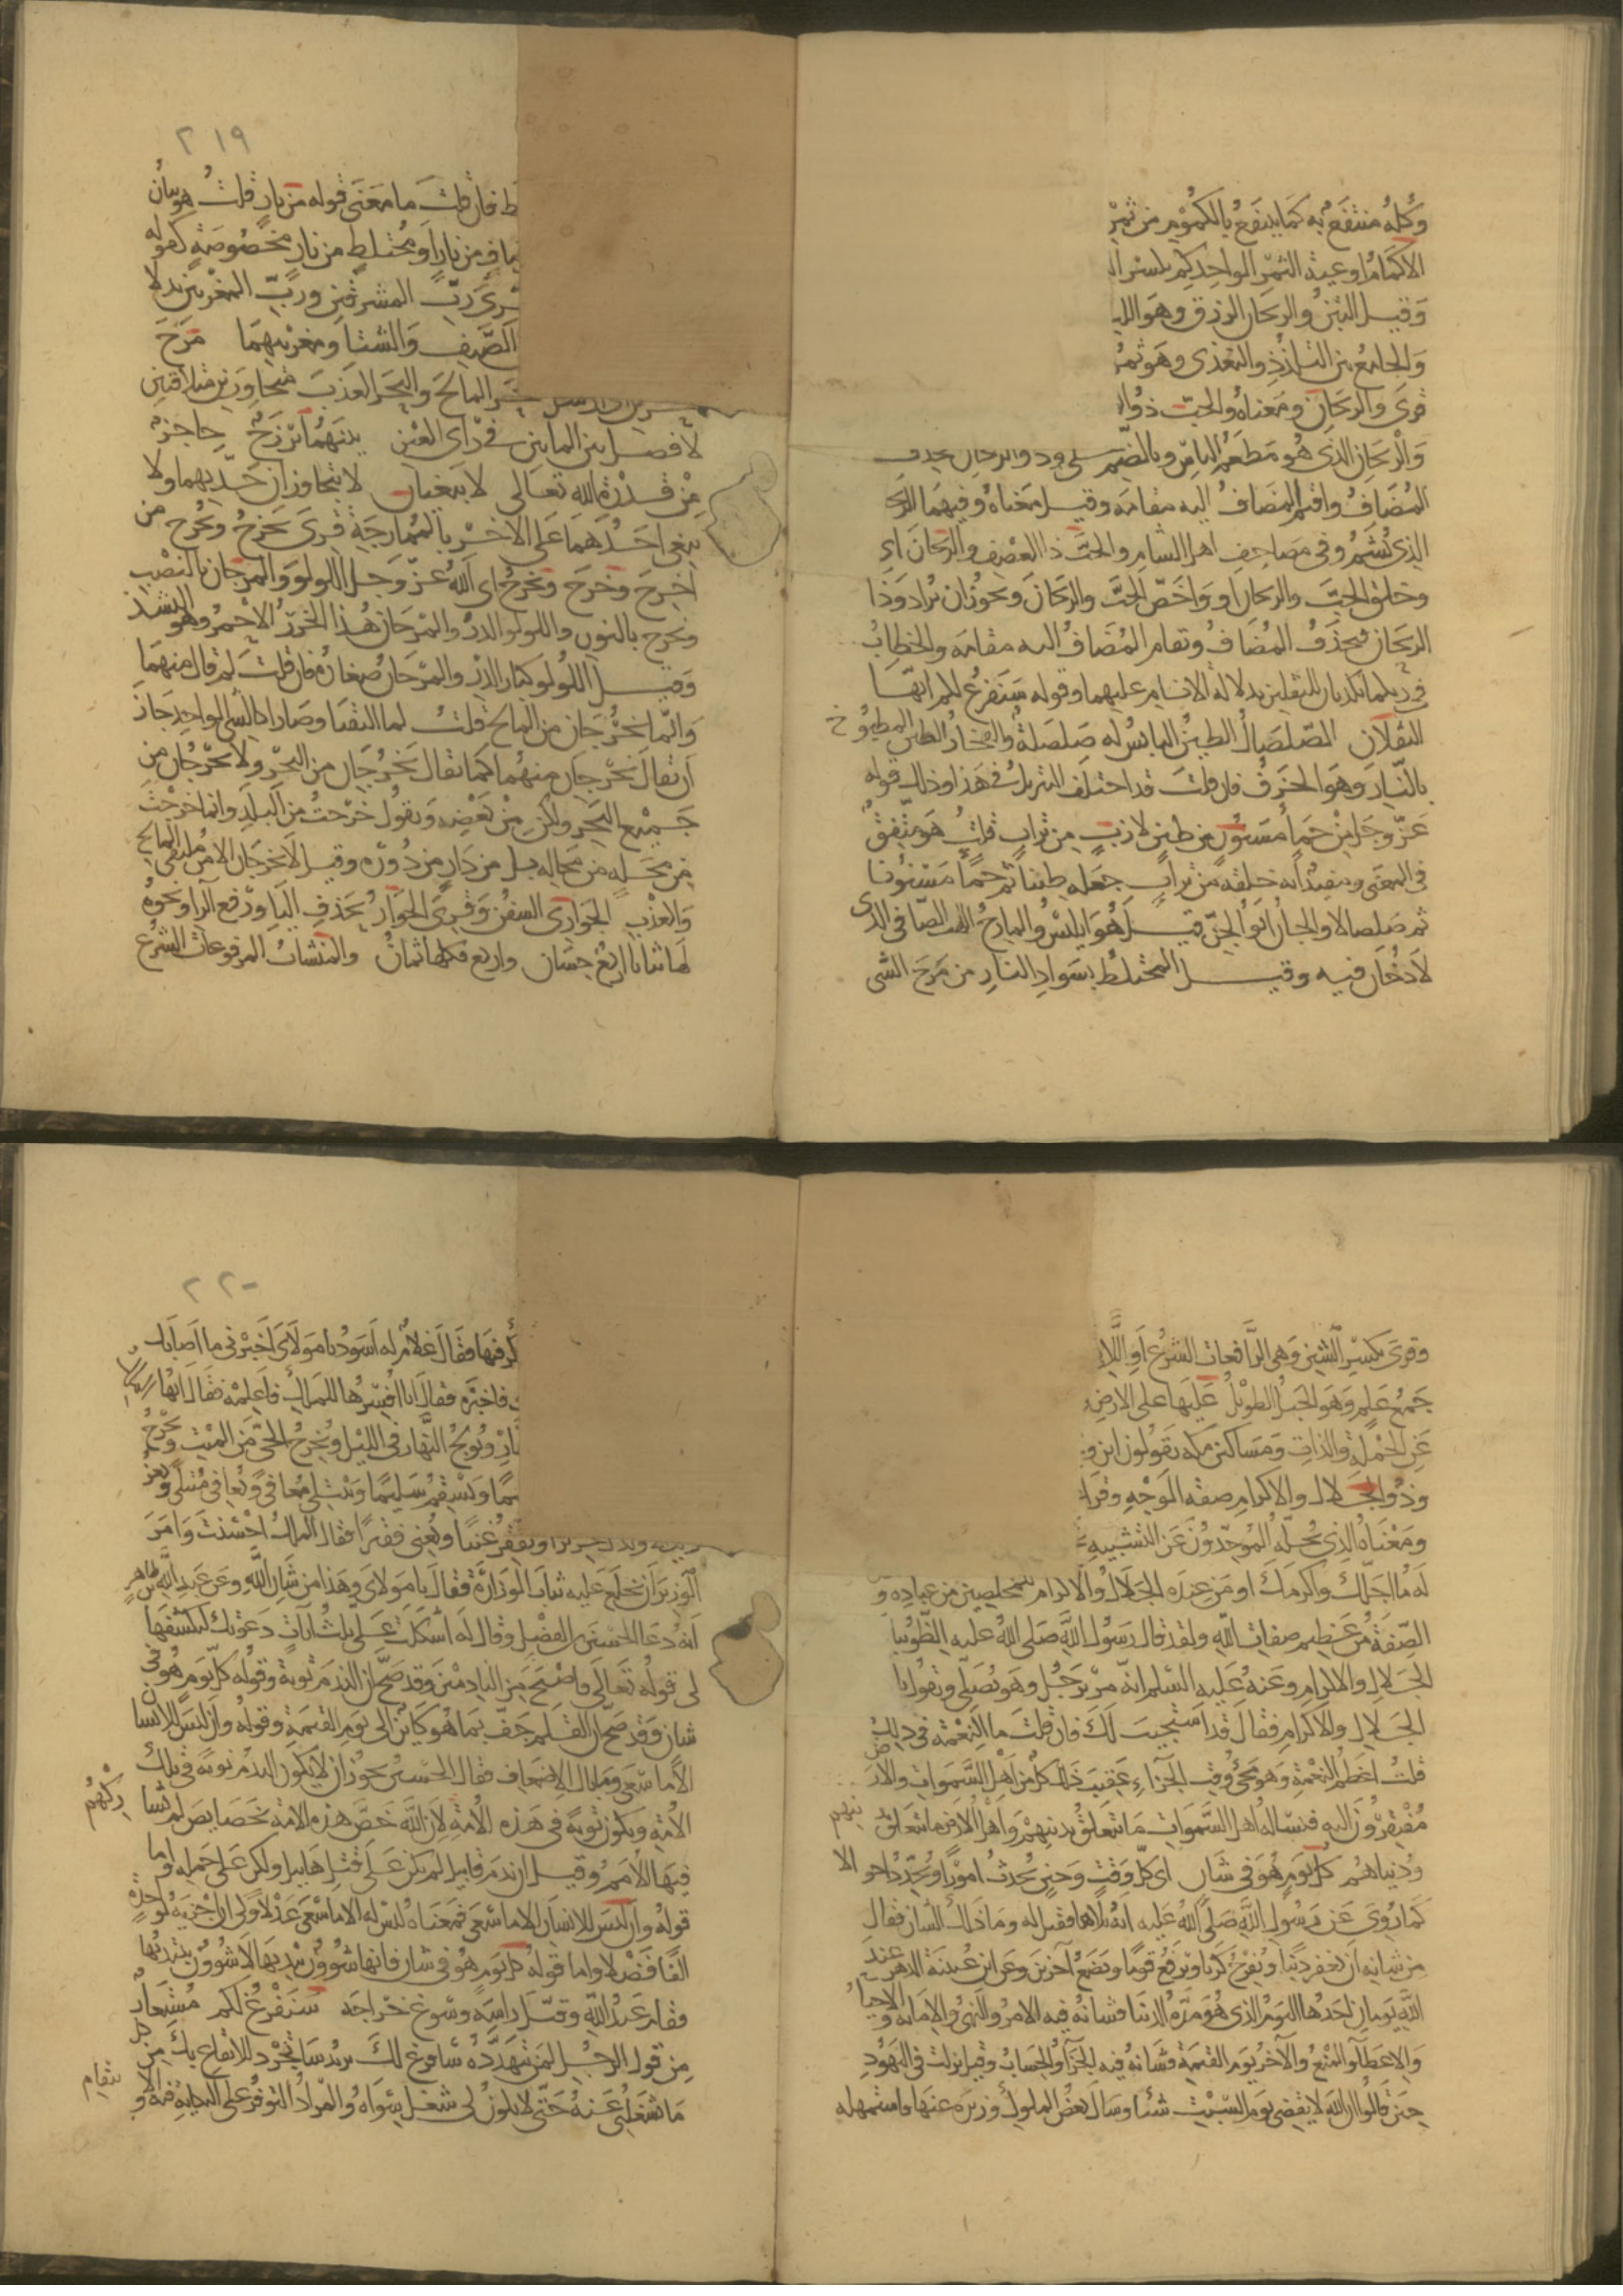 وكله منتفع به كما ينتفع بالمكموم من ثمره
الاكمام او عية الثمر الواحد كم بكسر ال
وقيل التبن والريحان الرزق وهو اللب
والجامع بين التلذذ والتغذى وهو ثمر
قرى والريحان ومعناه والحب ذو ال
والريحان الذى هو مطعم الناس وبالضم على وذو الريحان فحذف
المضاف واقيم المضاف اليه مقامه وقيل معناه وفيهما الريحان
الذى يُشم وفى مصاحف اهل الشام والحب ذا العصف والريحان اى
وخلق الحب والريحان او واخص الحب والريحان ويجوز ان يراد وذا
الريحان فيحذف المضاف وتقام المضاف اليه مقامه والخطاب
فى ربكما تكذبان للثقلين بدلالة الانام عليهما وقوله سنفرغ لكم ايها
الثقلان الصلصال الطين اليابس له صلصلة والفخار الطين المطبوخ
بالنار وهو الخزف فان قلت قد اختلف التنزيل فى هذا وذلك قوله
عز وجل من حمأ مسنون من طين لازب من تراب قلت هو متفق
فى المعنى ومفيد انه خلقه من تراب جعله طينا ثم حمأ مسنونا
ثم صلصالا والجان ابو الجن قيل هو ابليس والمارج اللهب الصافى الذى
لا دخان فيه وقيل المختلط بسواد النار من مرج الشى
٢١٩
ط فان قلت ما معنى قوله من نار قلت هو بيان
صاف من نار او مختلط من نار مخصوصة كقوله
قرى رب المشرقين ورب المغربين بدلا
الصيف والشتا ومغربيهما مرج
البحر المالح والبحر العذب متجاورين متلاقيين
لا فصل بين المايين فى راى العين بينهما برزخ حاجز
من قدرة الله تعالى لا يبغيان لا يتجاوزان حديهما ولا
يبغى احدهما على الاخر بالممارجة قرى يخرج ويخرج من
اخرج وخرج ونخرج اى الله عز وجل اللولو والمرجان بالنصب
ونخرج بالنون واللولو الدر والمرجان هذا الخرز الاحمر وهو البسد
وقيل اللولو كبار الدر والمرجان صغاره فان قلت لم قال منهما
وانما يخرجان من المالح قلت لما التقيا وصارا كالشى الواحد جاز
ان يقال يخرجان منهما كما يقال يخرجان من البحر ولا يخرجان من
جميع البحر ولكن من بعضه وتقول خرجت من البلد وانما خرجت
من محله من محاله بل من دار من دوره وقيل لا يخرجان الا من ملتقى المالح
والعذب الجوارى السفن وقرى الجوار بحذف اليا ورفع الرا ونحوه
لها ثنايا اربع حسان واربع فكلها ثمان والمنشات المرفوعات الشرع
وقرى بكسر الشين وهى الرافعات الشرع او اللا
جمع علم وهو الجبل الطويل عليها على الارض
عن الجملة والذات ومساكين مكه يقولون اين و
وذو الجلال والاكرام صفة الوجه وقرا
ومعناه الذى يجله الموحدون عن التشبيه
له ما اجلك واكرمك او من عنده الجلال والاكرام للمخلصين من عباده و
الصفة من عظيم صفات الله ولقد قال رسول الله صلى الله عليه الظوا بيا
الجلال والاكرام وعنه عليه السلم انه مر برجل وهو يصلى ويقول يا
الجلال والاكرام فقال قد استجيب لك فان قلت ما النعمة فى ذلك
قلت اعظم النعمة وهو مجى وقت الجزاء عقيب ذلك كل من اهل السموات والارض
مفتقرون اليه فيسأله اهل السموات ما يتعلق بدينهم واهل الارض ما يتعلق بدينهم
ودنياهم كل يوم هو فى شان اى كل وقت وحين يحدث امورا ويجدد احوالا
كما روى عن رسول الله صلى الله عليه انه تلاها فقيل له وما ذلك الشان فقال
من شانه ان يغفر ذنبا ويفرج كربا ويرفع قوما ويضع اخرين وعن ابن عيينة الدهر عند
الله يومان احدهما اليوم الذى هو مدة الدنيا فشانه فيه الامر والنهى والاماتة والاحياء
والاعطا والمنع والآخر يوم القيمة فشانه فيه الجزا والحساب وقيل نزلت فى اليهود
حين قالوا ان الله لا يقضى يوم السبت شيئا وسال بعض الملوك وزيره عنها واستمهله
٢٢٠
كر فيها فقال غلام له اسود يا مولاى اخبرنى ما اصابك
فاخبره فقال انا افسرها للملك فاعلمه فقال ايها
نهار ويولج النهار فى الليل ويخرج الحى من الميت ويخرج
يما ويسقم سليما ويبتلى معافى ويعافى مبتلى ويعز
ويذل عزيزا ويفقر غنيا ويغنى فقيرا فقال الملك احسنت وامر
الوزير ان يخلع عليه ثياب الوزارة فقال يا مولاى وهذا من شان الله وعن عبد الله بن طاهر
انه دعا الحسين بن الفضل وقال له اشكلت على ثلث ايات دعوتك لتكشفها
لى قوله تعالى فاصبح من النادمين وقد صح ان الندم توبة وقوله كل يوم هو فى
شان وقد صح ان القلم جف بما هو كاين الى يوم القيمة وقوله وان ليس للانسان
الا ما سعى وما بال الاضعاف فقال الحسين يجوز ان لا يكون الندم توبة فى تلك
الامة ويكون توبة فى هذه الامة لان الله خص هذه الامة بخصايص لم تشاركهم
فيها الامم وقيل ان ندم قابيل لم يكن على قتل هابيل ولكن على حمله واما
قوله وان ليس للانسان الا ما سعى فمعناه ليس له الا ما سعى عدلا ولى ان اجزيه بواحدة
الفا فضلا واما قوله كل يوم هو فى شان فانها شوون يبديها لا شوون يبتديها
فقام عبد الله وقبل راسه وسوغ خراجه سنفرغ لكم مستعار
من قول الرجل لمن يتهدده سافرغ لك يريد ساتجرد للايقاع بك من كل
ما شغلنى عنه حتى لا يكون لى شغل سواه والمراد التوفر على النكاية فيه والانتقام